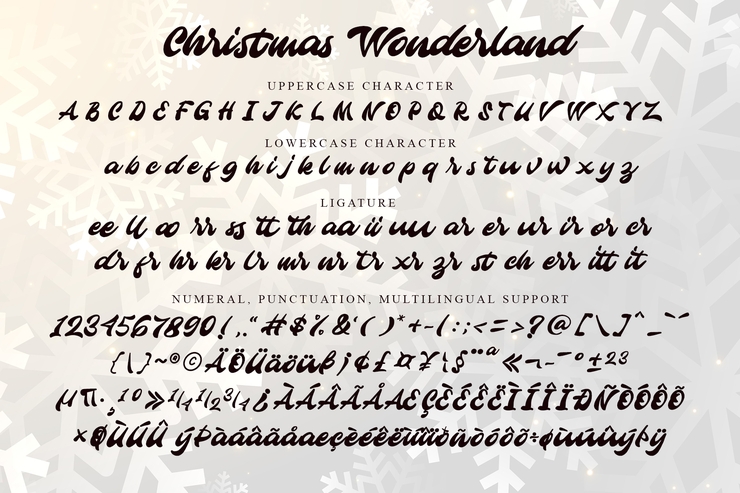 Christmas Wonderland
UPPERCASE CHARACTER
A B C D E F G H I J K L M N O P Q R S T U V W X Y Z
LOWERCASE CHARACTER
a b c d e f g h i j k l m n o p q r s t u v w x y z
LIGATURE
ee ll oo rr ss tt th aa ii uu ar er ur ir or cr
dr fr hr kr lr mr nr tr xr zr st ch err itt it
NUMERAL, PUNCTUATION, MULTILINGUAL SUPPORT
1234567890!,.“#$%&'()*+-(:;<=>?@[\]^_`˜
{\}~®©ÄÖÜäöüß¡¢£¤¥¦§¨ª«¬-¯°±²³
µ¶·¸¹º»¼½¾¿ÀÁÂÃÅÆÇÈÉÊËÌÍÎÏÐÑÒÓÔÕ
×ØÙÚÛ ýÞàáâãåæçèéêëìíîïðñòóôõ÷øùúûýþÿ